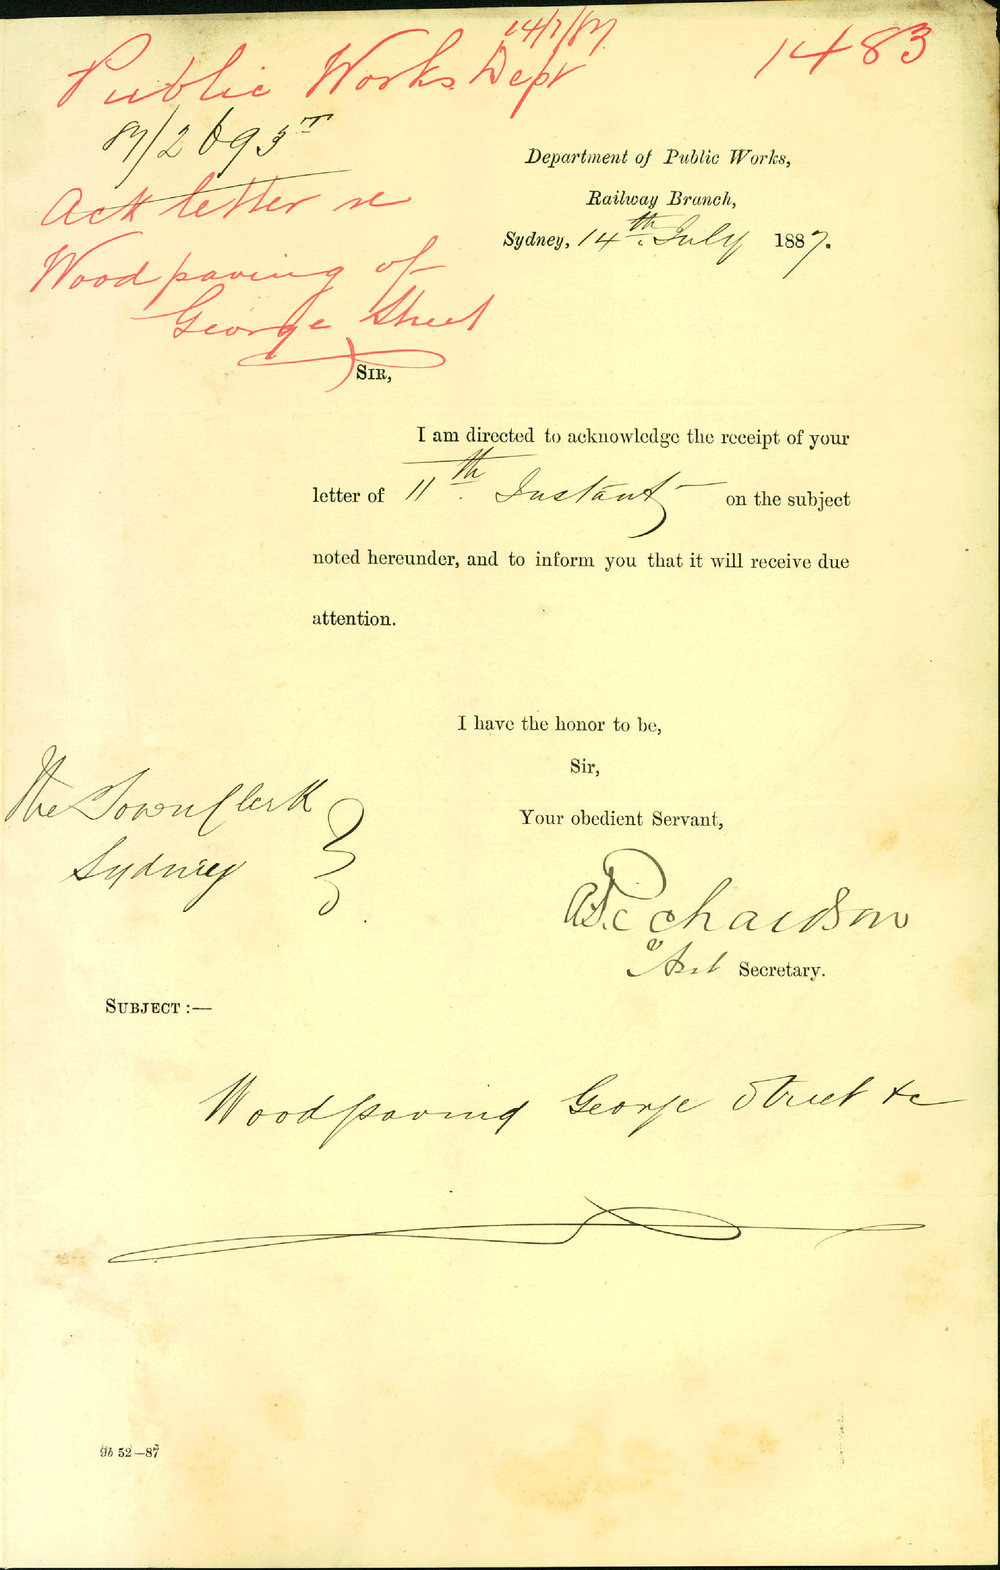 14/7/87
1483
Public Works Dept
87/2693T
Department of Public Works,
Railway Branch,
Sydney, 14th July 1887.
Ack letter re
Wood paving of
George Street
SIR,
I am directed to acknowledge the receipt of your
letter of 11th Instant on the subject
noted hereunder, and to inform you that it will receive due
attention.
I have the honor to be,
Sir,
Your obedient Servant,
The Town Clerk
Sydney
Richardson
Secretary.
SUBJECT :—
Woodpaving George Street &c
9b 52—87